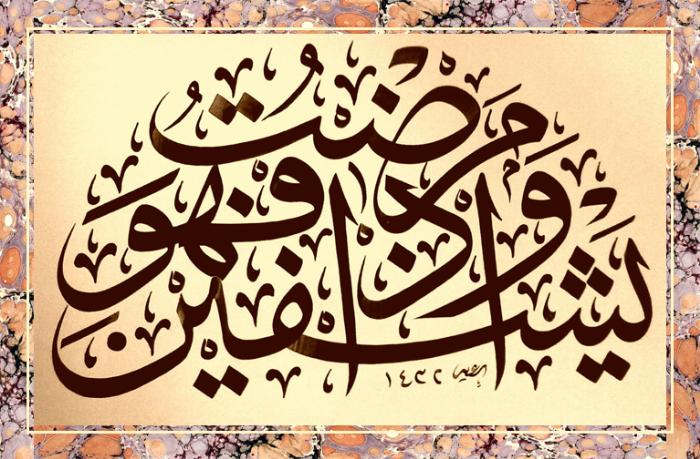 وَإِذَا مَرِضْتُ فَهُوَ يَشْفِينِ
١٤٣٢